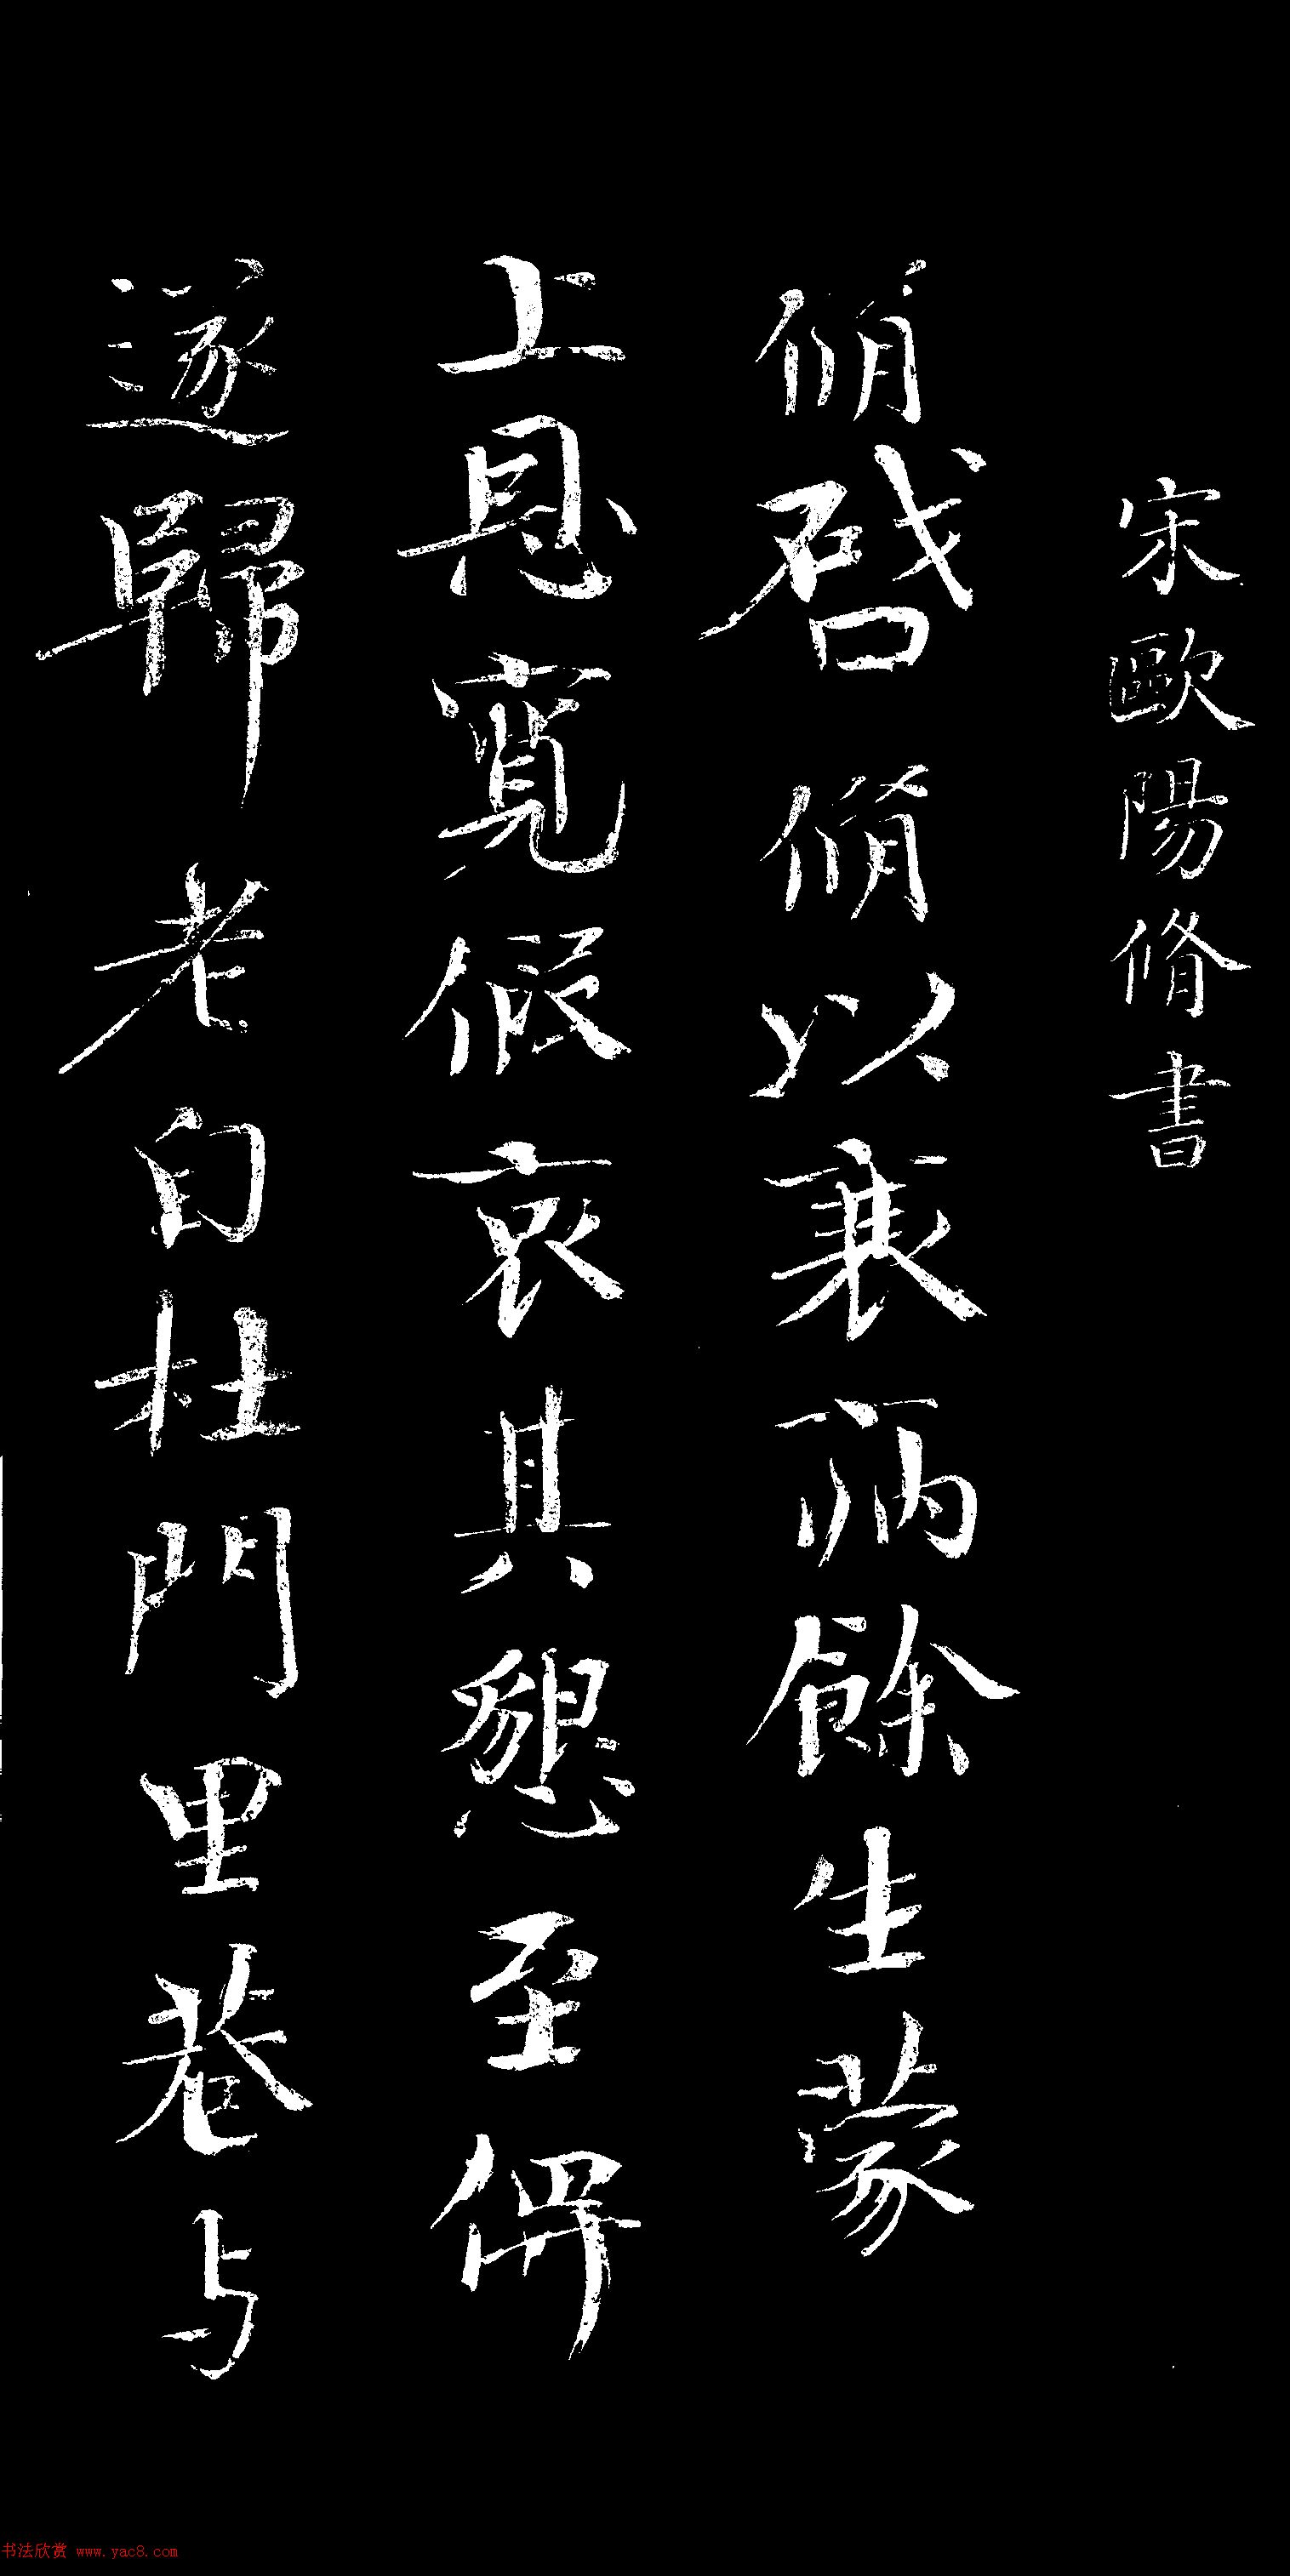 宋歐陽脩書
脩啓脩以衰病餘生蒙
上恩寬假哀其懇至俾
遂歸老自杜門里巷与
书法欣赏 www.yac8.com